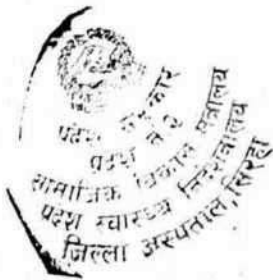 प्रदेश सरकार
प्रदेश नं २
सामाजिक विकास मन्त्रालय
प्रदेश स्वास्थ्य निर्देशनालय
जिल्ला अस्पताल, सिरहा